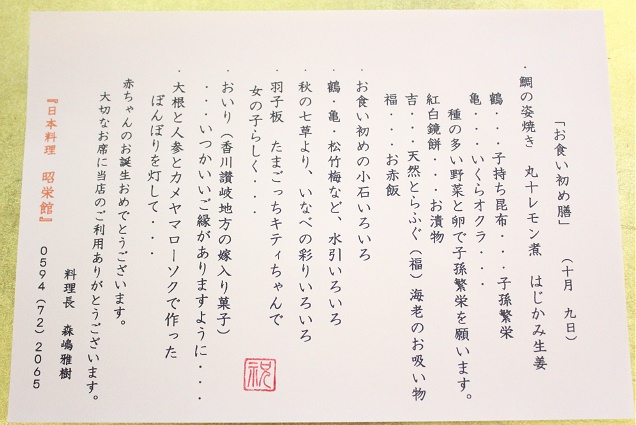 「お食い初め膳」　（十月　九日）
・鯛の姿焼き　丸十レモン煮　はじかみ生姜
鶴・・・子持ち昆布・・・子孫繁栄
亀・・・いくらオクラ・・・
種の多い野菜と卵で子孫繁栄を願います。
紅白鏡餅・・・お漬物
吉・・・天然とらふぐ（福）海老のお吸い物
福・・・お赤飯
・お食い初めの小石いろいろ
・鶴・亀・松竹梅など、水引いろいろ
・秋の七草より　いなべの彩りいろいろ
・羽子板　たまごっちキティちゃんで
女の子らしく・・・
・おいり（香川讃岐地方の嫁入り菓子）
・・・いつかいいご縁がありますように・・・
・大根と人参とカメヤマローソクで作った
ぼんぼりを灯して・・・
赤ちゃんのお誕生おめでとうございます。
大切なお席に当店のご利用ありがとうございます。
料理長　森嶋雅樹
『日本料理　昭栄館』　0594（72）2065
祝